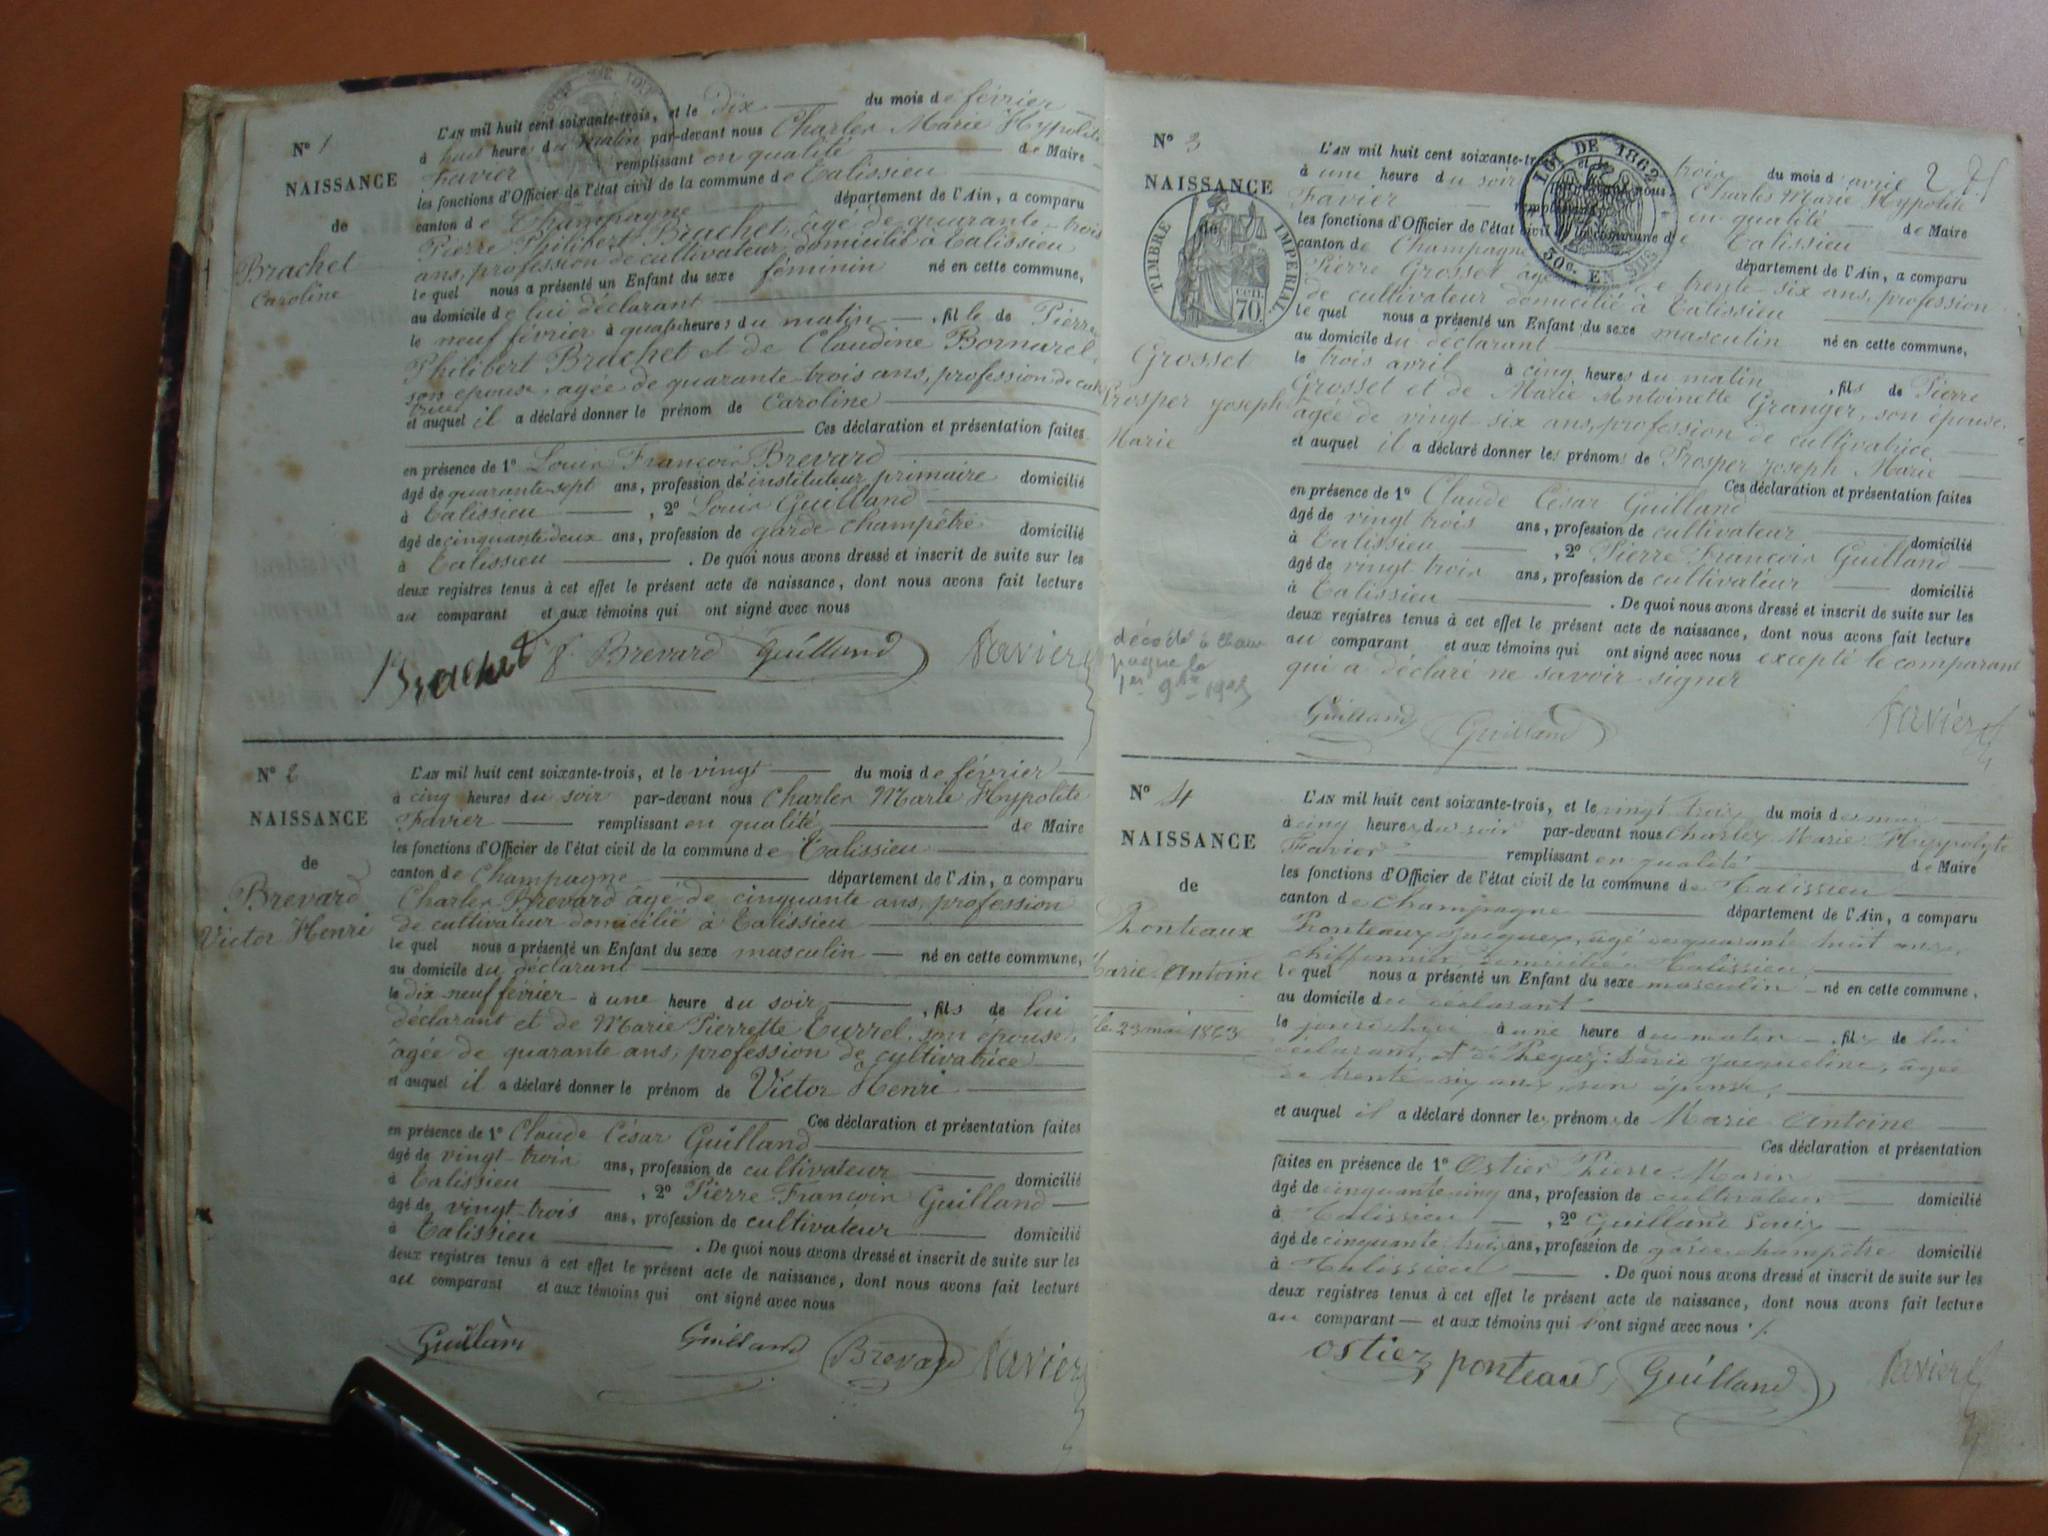 N° 1
NAISSANCE
de
Brachet
Caroline
L'AN mil huit cent soixante-trois, et le dix du mois de février
à huit heures du matin par-devant nous Charles Marie Hypolite
Favier remplissant en qualité de Maire
les fonctions d'Officier de l'état civil de la commune de Talissieu
canton de Champagne département de l'Ain, a comparu
Pierre Philibert Brachet, âgé de quarante-trois
ans, profession de cultivateur, domicilié à Talissieu
le quel nous a présenté un Enfant du sexe féminin né en cette commune,
au domicile de lui déclarant
le neuf février à quatre heures du matin, fille de Pierre
Philibert Brachet et de Claudine Bornarel
son épouse, agée de quarante-trois ans, profession de cultivatrice
et auquel il a déclaré donner le prénom de Caroline
Ces déclaration et présentation faites
en présence de 1° Louis François Brevard
âgé de quarante-sept ans, profession de instituteur primaire domicilié
à Talissieu, 2° Louis Guilland
âgé de cinquante deux ans, profession de garde champêtre domicilié
à Talissieu. De quoi nous avons dressé et inscrit de suite sur les
deux registres tenus à cet effet le présent acte de naissance, dont nous avons fait lecture
au comparant et aux témoins qui ont signé avec nous
Brachet f. Brevard Guilland Favier
N° 2
NAISSANCE
de
Brevard
Victor Henri
L'AN mil huit cent soixante-trois, et le vingt du mois de février
à cinq heures du soir par-devant nous Charles Marie Hypolite
Favier remplissant en qualité de Maire
les fonctions d'Officier de l'état civil de la commune de Talissieu
canton de Champagne département de l'Ain, a comparu
Charles Brevard âgé de cinquante ans, profession
de cultivateur domicilié à Talissieu
le quel nous a présenté un Enfant du sexe masculin né en cette commune,
au domicile du déclarant
le dix-neuf février à une heure du soir, fils de lui
déclarant et de Marie Pierrette Turrel, son épouse,
âgée de quarante ans, profession de cultivatrice
et auquel il a déclaré donner le prénom de Victor Henri
Ces déclaration et présentation faites
en présence de 1° Claude César Guilland
âgé de vingt-trois ans, profession de cultivateur domicilié
à Talissieu, 2° Pierre François Guilland
âgé de vingt-trois ans, profession de cultivateur domicilié
à Talissieu. De quoi nous avons dressé et inscrit de suite sur les
deux registres tenus à cet effet le présent acte de naissance, dont nous avons fait lecture
au comparant et aux témoins qui ont signé avec nous
Guilland Guilland Brevard Favier
N° 3
NAISSANCE
de
TIMBRE IMPÉRIAL
70
Grosset
Prosper Joseph
Marie
décédé à Cham
pagne le
1er 9bre
LOI DE 1862
50c. EN SUS
2
L'AN mil huit cent soixante-trois, et le trois du mois d'avril
à une heure du soir par-devant nous Charles Marie Hypolite
Favier remplissant en qualité de Maire
les fonctions d'Officier de l'état civil de la commune de Talissieu
canton de Champagne département de l'Ain, a comparu
Pierre Grosset âgé de trente-six ans, profession
de cultivateur domicilié à Talissieu
le quel nous a présenté un Enfant du sexe masculin né en cette commune,
au domicile du déclarant
le trois avril à cinq heures du matin, fils de Pierre
Grosset et de Marie Antoinette Granger, son épouse,
âgée de vingt-six ans, profession de cultivatrice
et auquel il a déclaré donner les prénoms de Prosper Joseph Marie
Ces déclaration et présentation faites
en présence de 1° Claude César Guilland
âgé de vingt trois ans, profession de cultivateur domicilié
à Talissieu, 2° Pierre François Guilland
âgé de vingt trois ans, profession de cultivateur domicilié
à Talissieu. De quoi nous avons dressé et inscrit de suite sur les
deux registres tenus à cet effet le présent acte de naissance, dont nous avons fait lecture
au comparant et aux témoins qui ont signé avec nous excepté le comparant
qui a déclaré ne savoir signer
Guilland Guilland Favier
N° 4
NAISSANCE
de
Ponteaux
Marie Antoine
le 23 mai 1863
L'AN mil huit cent soixante-trois, et le vingt trois du mois de mai
à cinq heures du soir par-devant nous Charles Marie Hyppolyte
Favier remplissant en qualité de Maire
les fonctions d'Officier de l'état civil de la commune de Talissieu
canton de Champagne département de l'Ain, a comparu
Ponteaux Jacques, âgé de quarante huit ans,
chiffonnier, domicilié à Talissieu,
le quel nous a présenté un Enfant du sexe masculin né en cette commune,
au domicile du déclarant
le jourd'hui à une heure du matin, fils de lui
déclarant, et de Marie Jacqueline, âgée
de trente six ans, son épouse,
et auquel il a déclaré donner les prénoms de Marie Antoine
Ces déclaration et présentation
faites en présence de 1° Ostier Pierre Marin
âgé de cinquante cinq ans, profession de cultivateur domicilié
à Talissieu, 2° Guilland Louis
âgé de cinquante trois ans, profession de garde champêtre domicilié
à Talissieu. De quoi nous avons dressé et inscrit de suite sur les
deux registres tenus à cet effet le présent acte de naissance, dont nous avons fait lecture
au comparant — et aux témoins qui l'ont signé avec nous
Ostiez ponteaux Guilland Favier